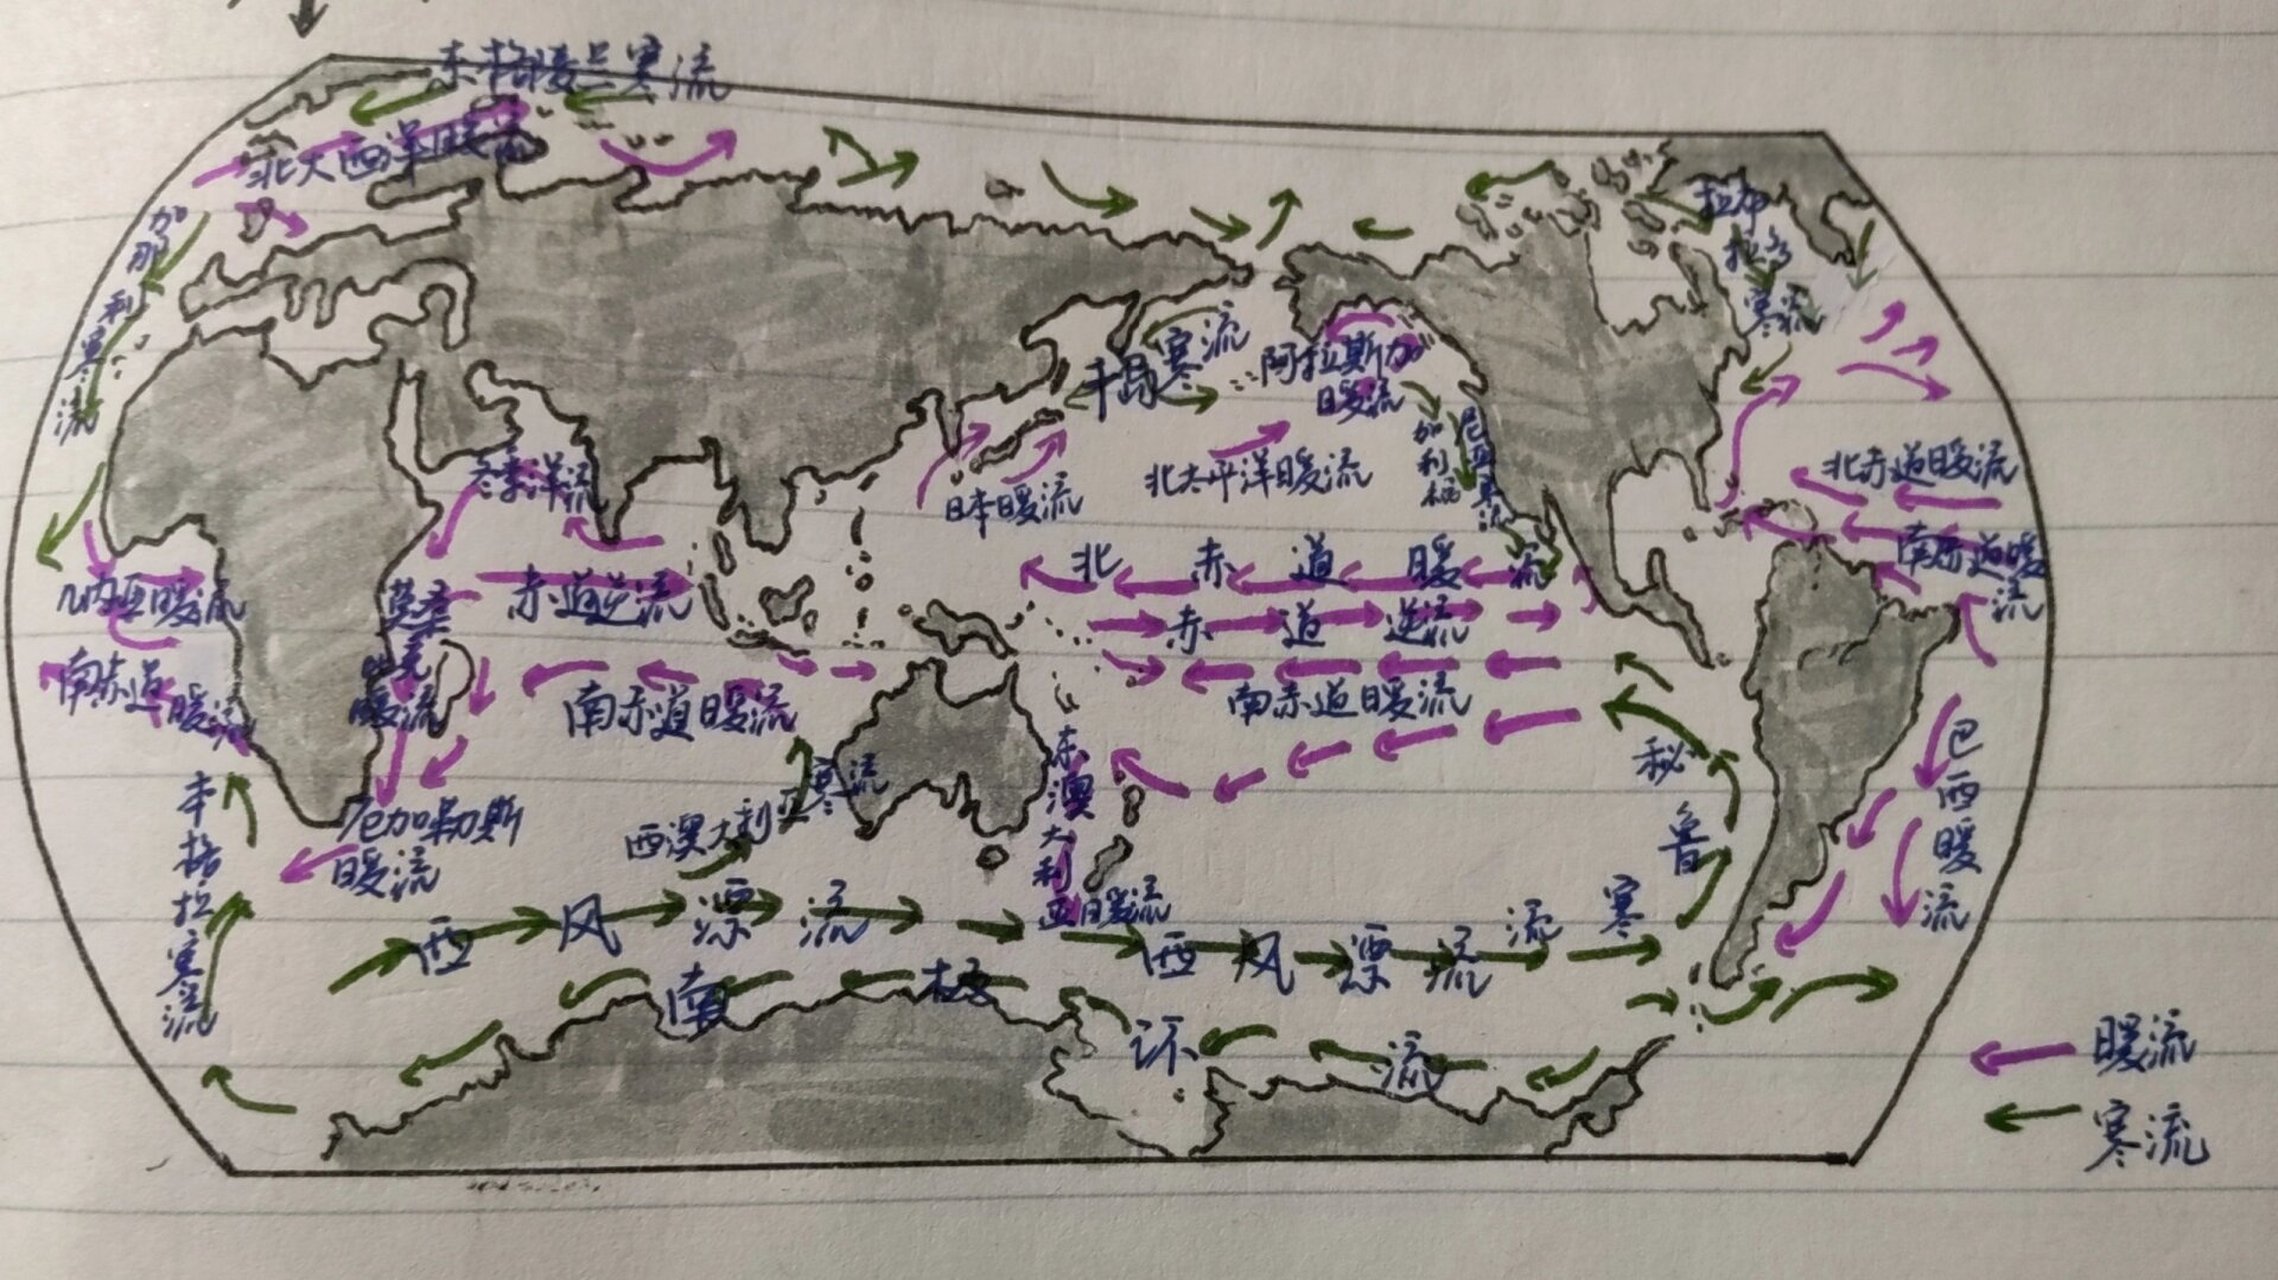 东格陵兰寒流
北大西洋暖流
加那利寒流
拉布拉多寒流
千岛寒流
阿拉斯加暖流
加利福尼亚寒流
冬季洋流
日本暖流
北太平洋暖流
北赤道暖流
南赤道暖流
几内亚暖流
南赤道暖流
莫桑比克暖流
赤道逆流
南赤道暖流
北赤道暖流
赤道逆流
南赤道暖流
东澳大利亚暖流
西澳大利亚寒流
秘鲁寒流
巴西暖流
本格拉寒流
厄加勒斯暖流
西风漂流
西风漂流
南极环流
暖流
寒流